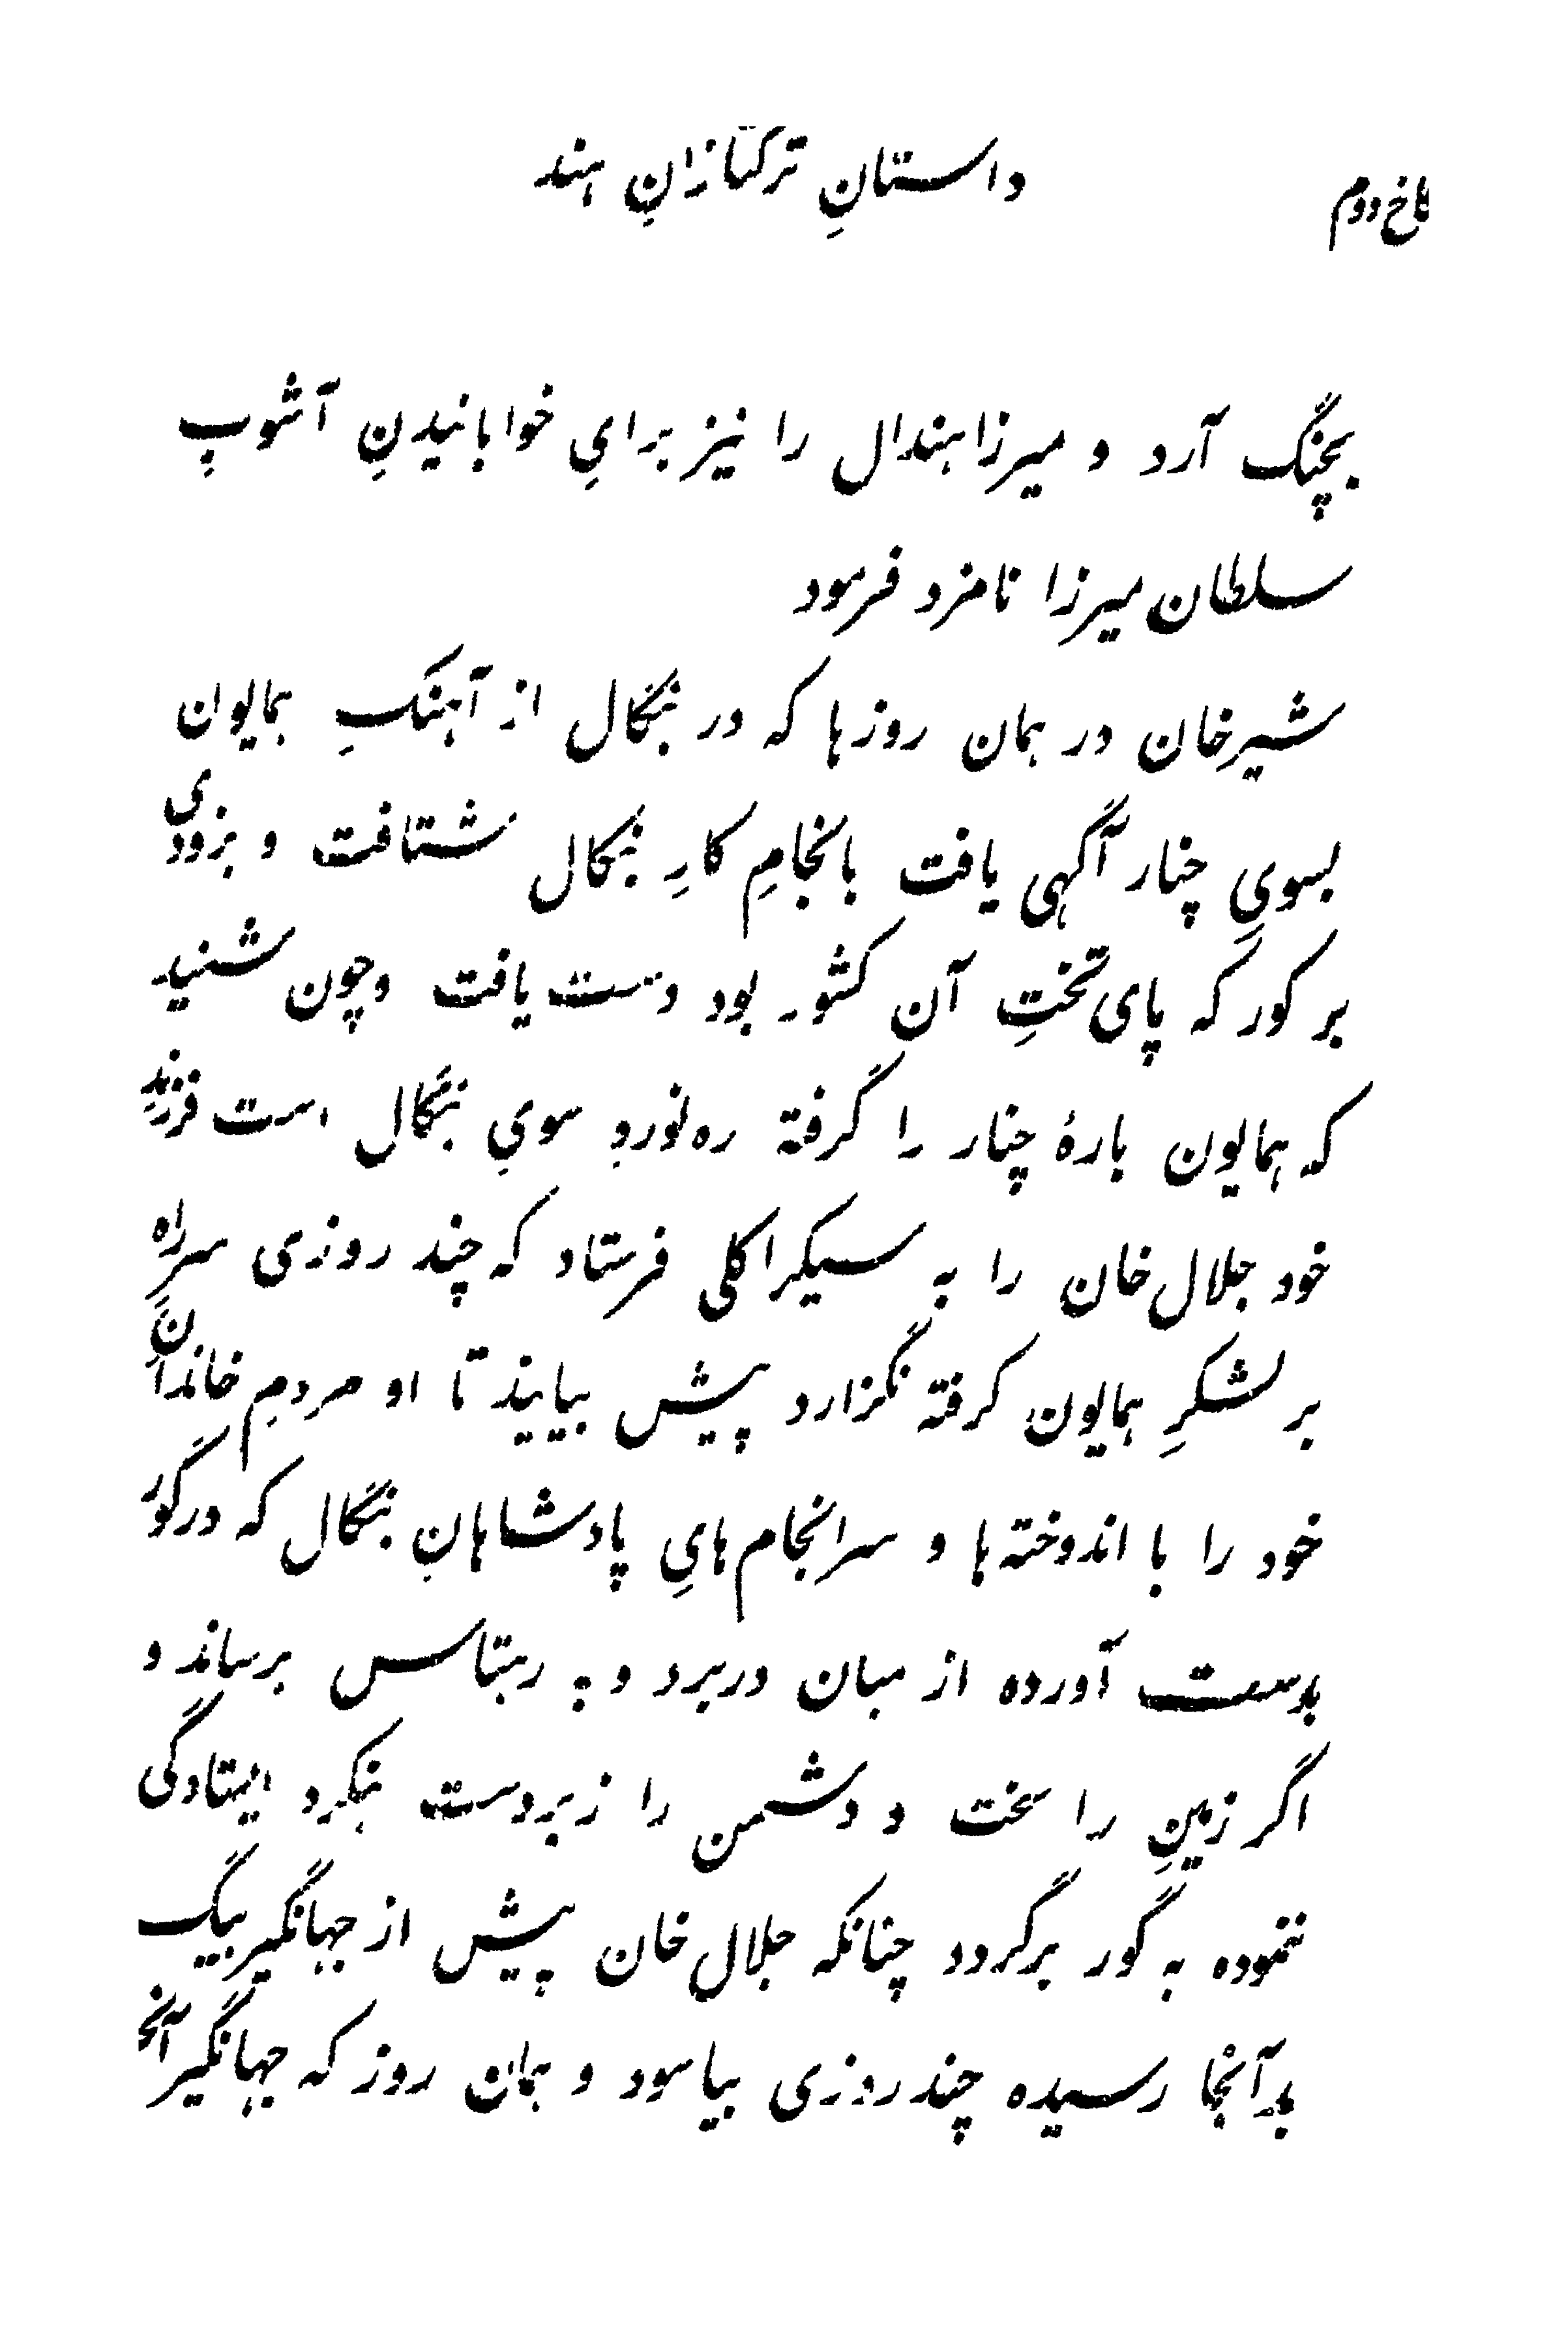 کاخ دوم
داستانِ ترکتازانِ هند
بچنگ آرد و میرزا هندال را نیز برایِ خوابانیدنِ آشوبِ
سلطان میرزا نامزد فرمود
شیرخان در همان روزها که در بنگال از آهنگِ همایون
بسویِ چنار آگهی یافت بانجامِ کارِ بنگال شتافت و بزودی
بر گور که پای تختِ آن کشور بود دست یافت و چون شنید
که همایون بارهٔ چنار را گرفته ره نوردِ سویِ بنگال است فرزندِ
خود جلال خان را به سیکراکلی فرستاد که چند روزی سر راه
بر لشکرِ همایون گرفته نگزارد پیش بیایند تا او مردمِ خاندانِ
خود را با اندوخته ها و سرانجام هایِ پادشاهانِ بنگال که در گور
بدست آورده از میان دربرد و به رهتاس برساند و
اگر زمینِ را سخت و دشمن را زبردست بنگرد ایستادگی
ننموده به گور برگردد چنانکه جلال خان پیش از جهانگیر بیگ
بدآنجا رسیده چند روزی بیاسود و همان روز که جهانگیر آنجا